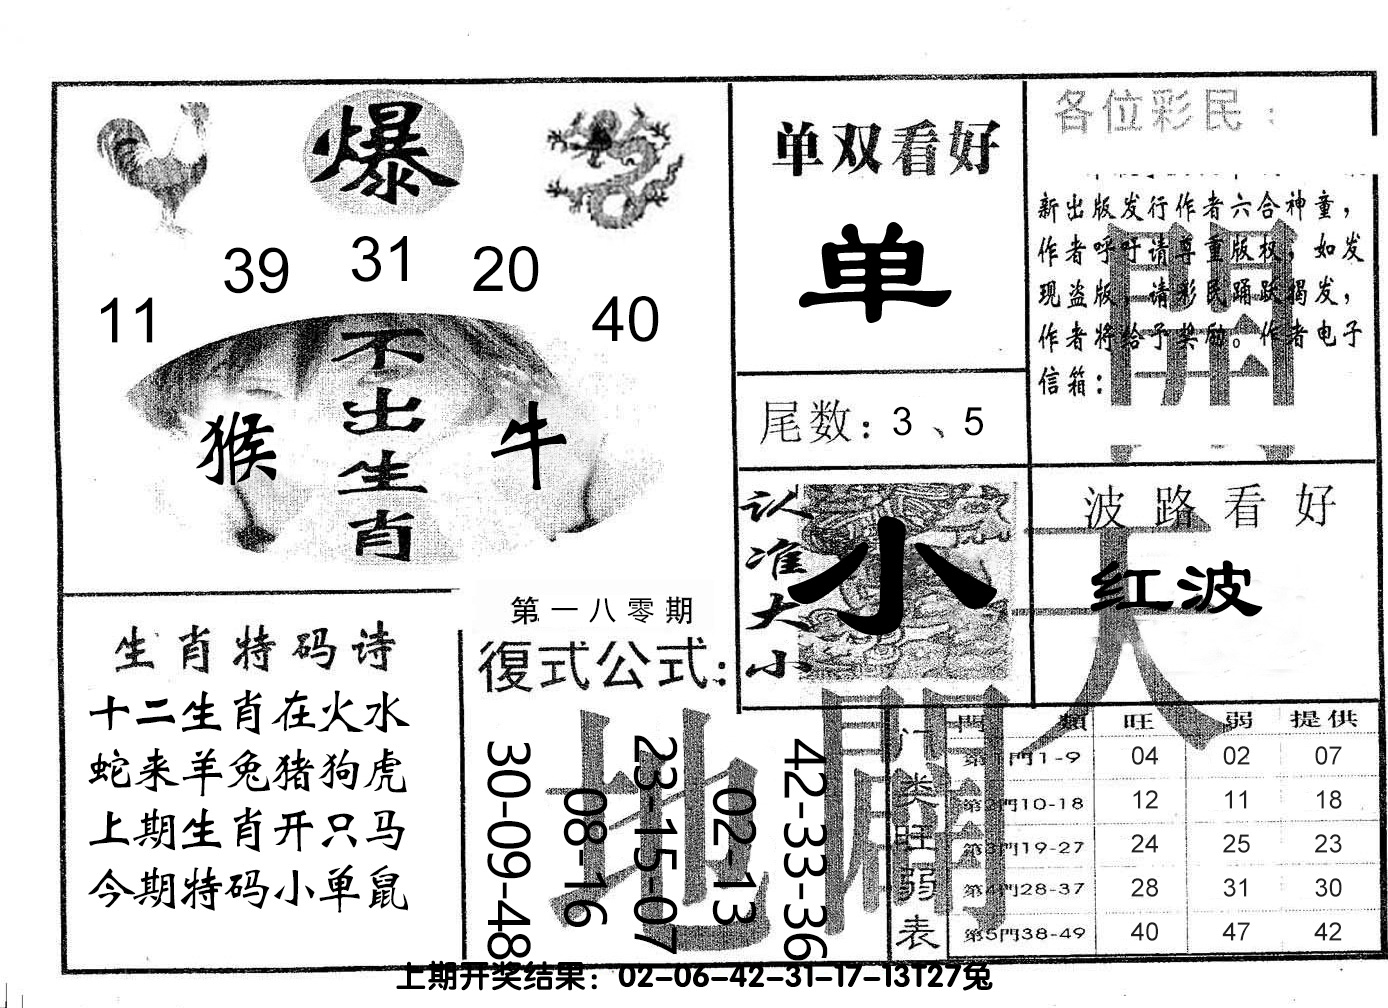 爆
11 39 31 20 40
不出生肖
猴 牛
单双看好
单
尾数：3、5
各位彩民：
新出版发行作者六合神童，
作者呼吁请尊重版权，如发
现盗版，请彩民踊跃揭发，
作者将给予奖励。作者电子
信箱：
開
认准大小
小
波路看好
红波
天
生肖特码诗
十二生肖在火水
蛇来羊兔猪狗虎
上期生肖开只马
今期特码小单鼠
第一八零期
復式公式：
30-09-48
08-16
23-15-07
02-13
42-33-36
地
闢
门类旺弱表
門類 旺 弱 提供
第1門1-9 04 02 07
第2門10-18 12 11 18
第3門19-27 24 25 23
第4門28-37 28 31 30
第5門38-49 40 47 42
上期开奖结果：02-06-42-31-17-13T27兔